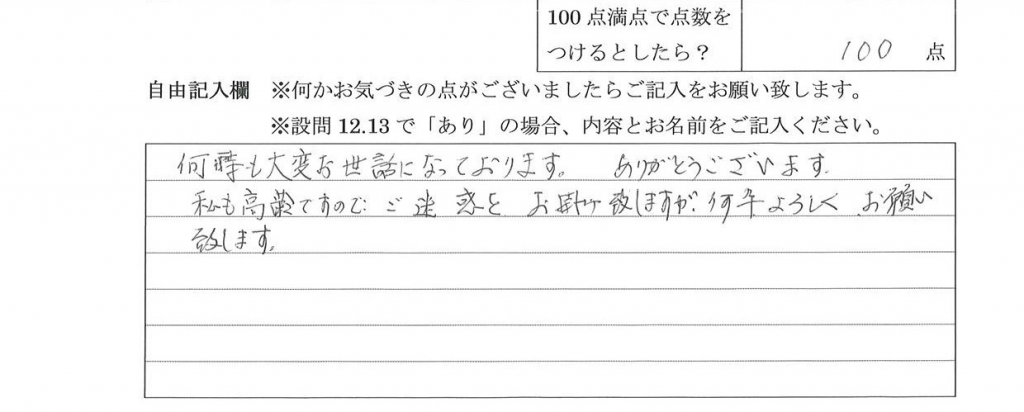 100点満点で点数を
つけるとしたら？
100 点
自由記入欄 ※何かお気づきの点がございましたらご記入をお願い致します。
※設問 12.13 で「あり」の場合、内容とお名前をご記入ください。
何時も大変お世話になっております。 ありがとうございます.
私も高齢ですので ご迷惑を お掛け致しますが、何卒よろしく お願い
致します。